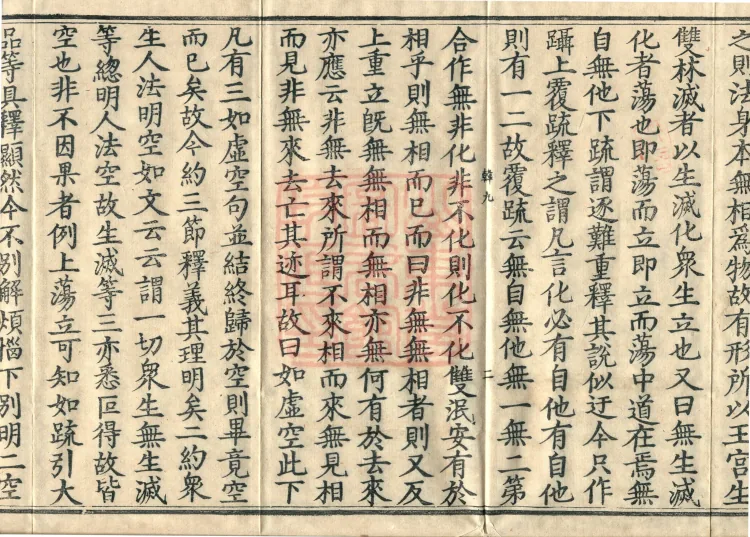 之則法身本無相爲物故有形所以王宫生
雙林滅者以生滅化衆生立也又曰無生滅
化者蕩也即蕩而立即立而蕩中道在焉無
自無他下䟽謂逐難重釋其說似迂今只作
躡上覆䟽釋之謂凡言化必有自他有自他
則有一二故覆䟽云無自無他無一無二第
韓九 二
合作無非化非不化則化不化雙泯安有於
相乎則無相而已而曰非無無相者則又反
上重立旣無無相而無相亦無何有於去來
亦應云非無去來所謂不來相而來無見相
而見非無來去亡其迹耳故曰如虛空此下
凡有三如虛空句並結終歸於空則畢竟空
而已矣故今約三節釋義其理明矣二約衆
生人法明空如文云云謂一切衆生無生滅
等總明人法空故生滅等三亦悉叵得故皆
空也非不因果者例上蕩立可知如䟽引大
品等具釋顯然今不別解煩惱下別明二空